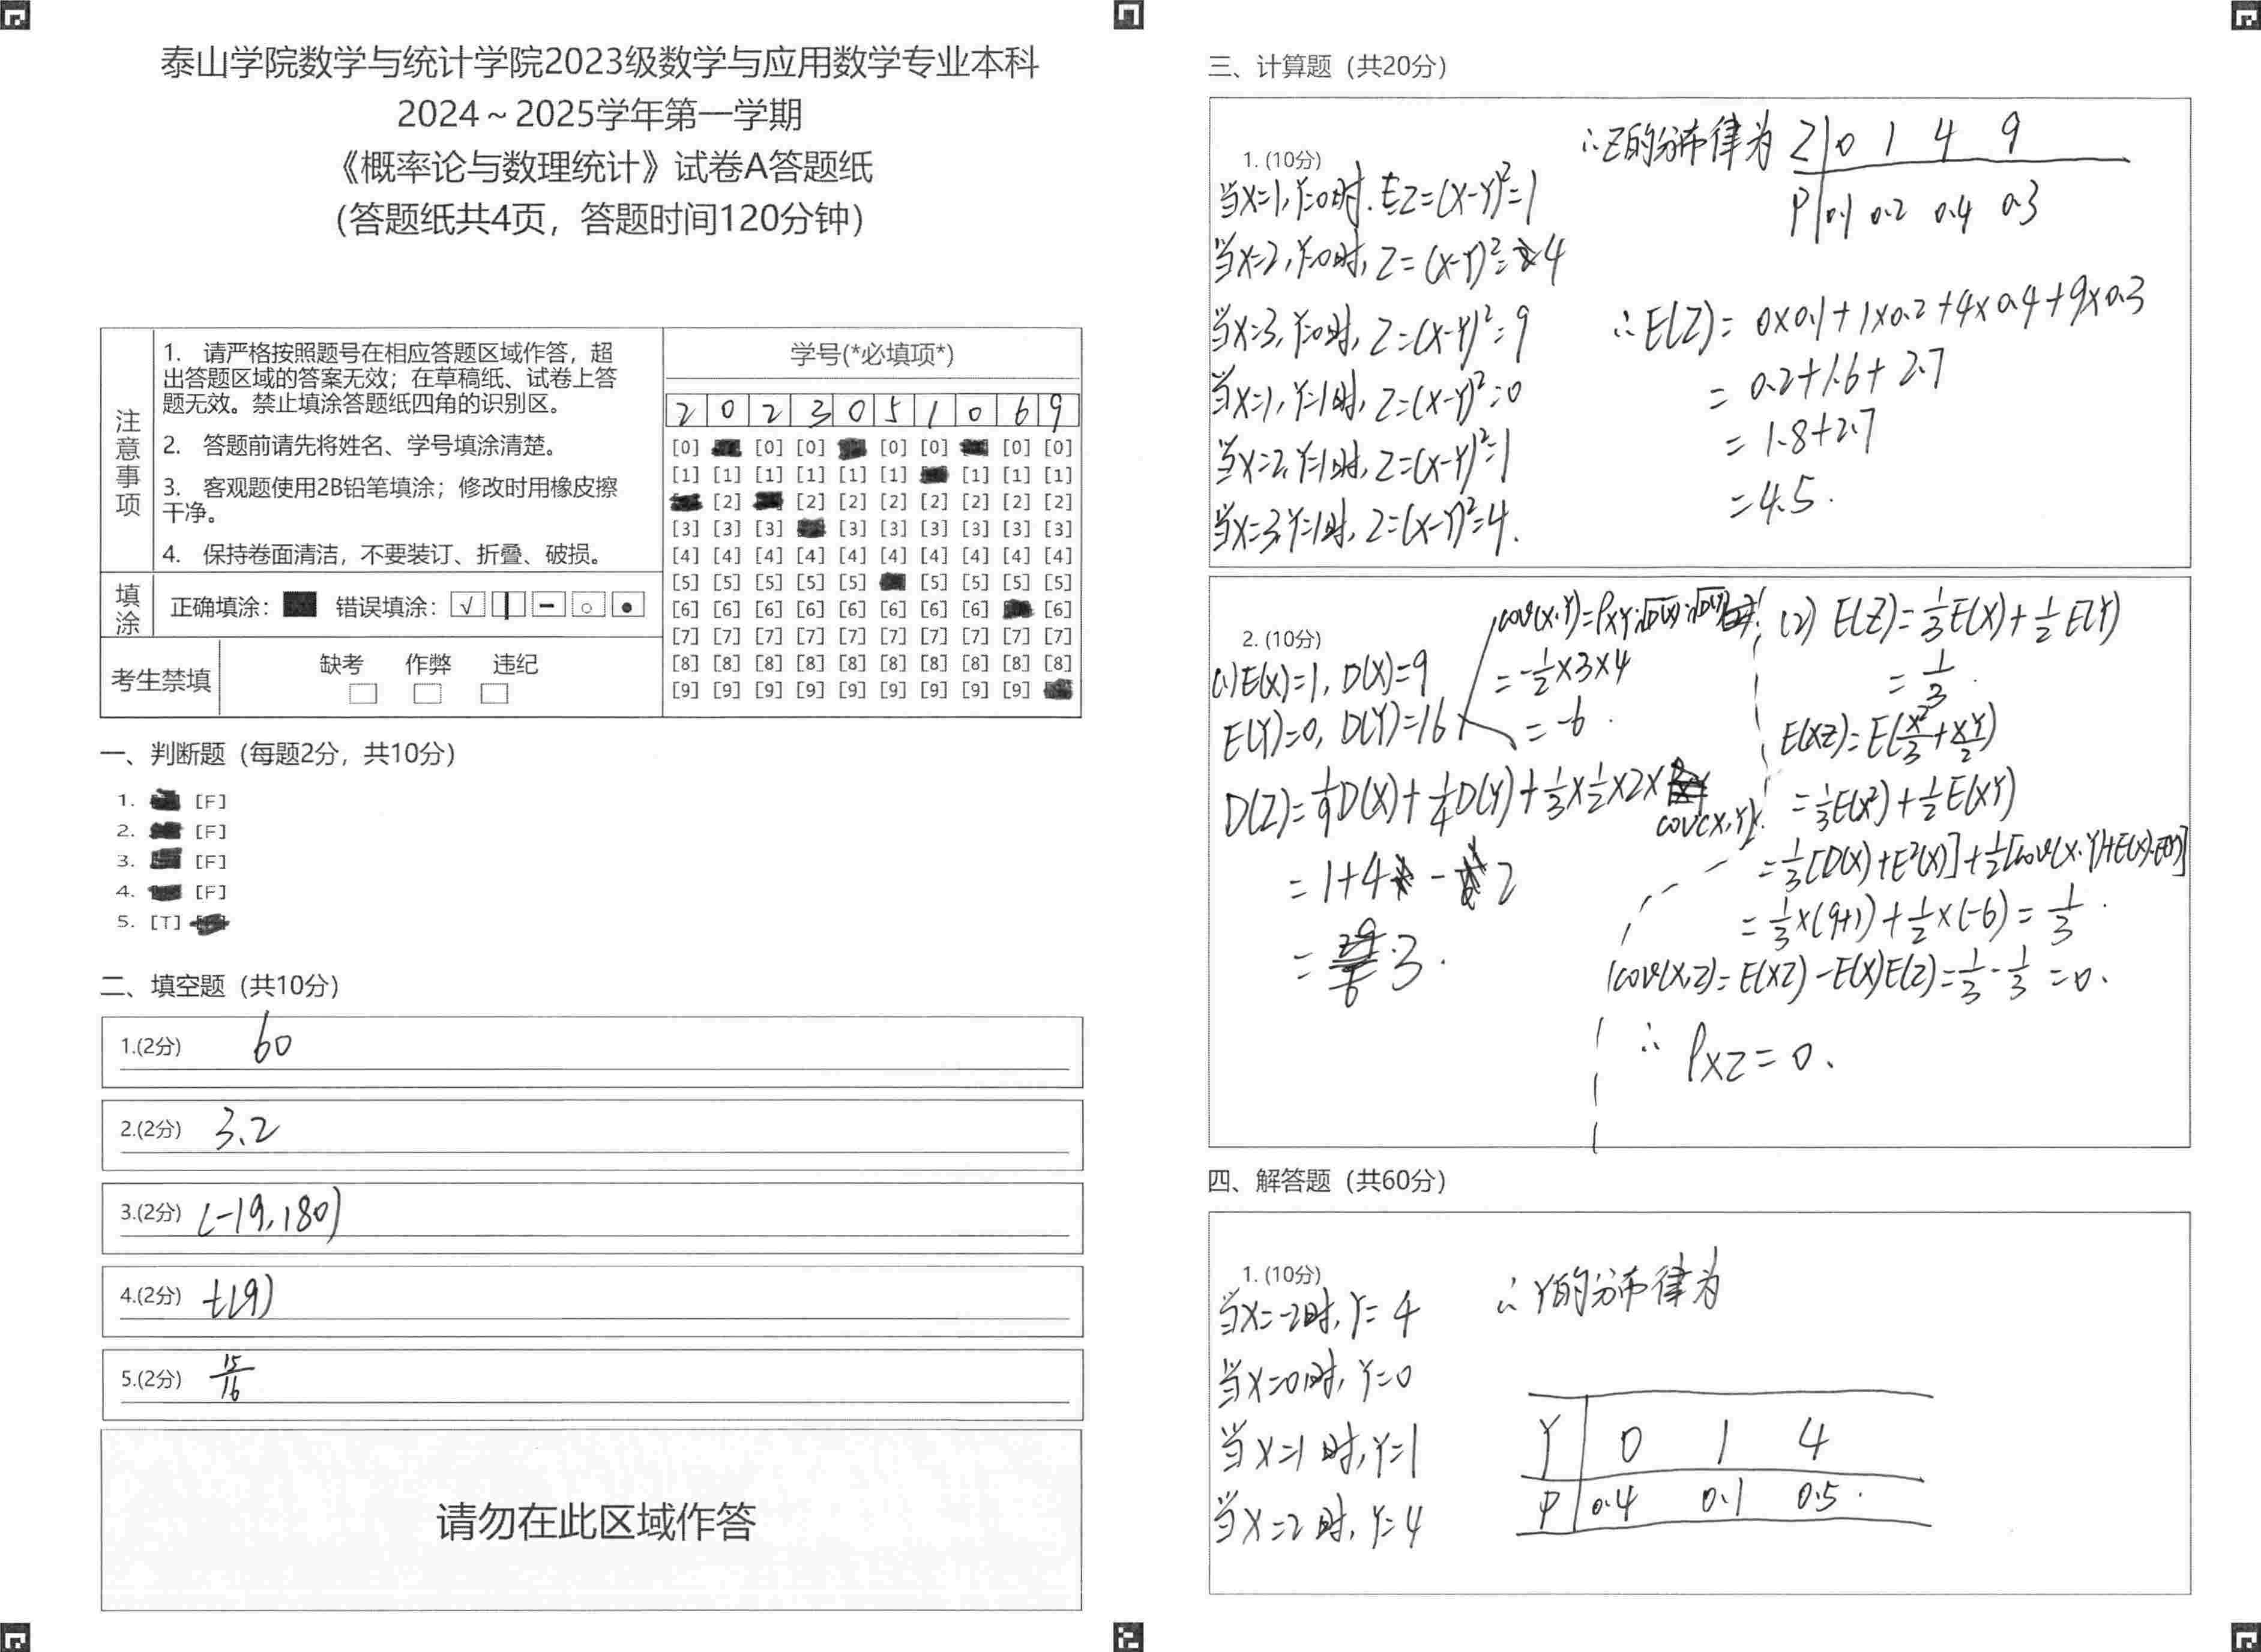 泰山学院数学与统计学院2023级数学与应用数学专业本科
2024～2025学年第一学期
《概率论与数理统计》试卷A答题纸
（答题纸共4页，答题时间120分钟）
注意事项
1. 请严格按照题号在相应答题区域作答，超
出答题区域的答案无效；在草稿纸、试卷上答
题无效。禁止填涂答题纸四角的识别区。
2. 答题前请先将姓名、学号填涂清楚。
3. 客观题使用2B铅笔填涂；修改时用橡皮擦
干净。
4. 保持卷面清洁，不要装订、折叠、破损。
填涂 正确填涂： 错误填涂：
考生禁填 缺考 作弊 违纪
学号(*必填项*)
2 0 2 3 0 5 1 0 6 9
[0] [0] [0] [0] [0] [0] [0]
[1] [1] [1] [1] [1] [1] [1] [1] [1]
[2] [2] [2] [2] [2] [2] [2] [2]
[3] [3] [3] [3] [3] [3] [3] [3] [3]
[4] [4] [4] [4] [4] [4] [4] [4] [4] [4]
[5] [5] [5] [5] [5] [5] [5] [5] [5]
[6] [6] [6] [6] [6] [6] [6] [6] [6]
[7] [7] [7] [7] [7] [7] [7] [7] [7] [7]
[8] [8] [8] [8] [8] [8] [8] [8] [8] [8]
[9] [9] [9] [9] [9] [9] [9] [9] [9]
一、判断题（每题2分，共10分）
1. [F]
2. [F]
3. [F]
4. [F]
5. [T]
二、填空题（共10分）
1.(2分) 60
2.(2分) 3.2
3.(2分) (-19,180)
4.(2分) t(9)
5.(2分) 15/16
请勿在此区域作答
三、计算题（共20分）
1. (10分)
当X=1,Y=0时, Z=(X-Y)²=1
当X=2,Y=0时, Z=(X-Y)²=4
当X=3,Y=0时, Z=(X-Y)²=9
当X=1,Y=1时, Z=(X-Y)²=0
当X=2,Y=1时, Z=(X-Y)²=1
当X=3,Y=1时, Z=(X-Y)²=4.
∴Z的分布律为 Z 0 1 4 9
P 0.1 0.2 0.4 0.3
∴E(Z)= 0×0.1+1×0.2+4×0.4+9×0.3
= 0.2+1.6+2.7
= 1.8+2.7
=4.5.
2. (10分)
(1)E(X)=1, D(X)=9
E(Y)=0, D(Y)=16
cov(X,Y)=ρXY·√D(X)·√D(Y)
=-1/2×3×4
=-6.
D(Z)=1/9D(X)+1/4D(Y)+1/3×1/2×2×cov(X,Y).
=1+4-2
=3.
(2) E(Z)=1/3E(X)+1/2E(Y)
=1/3.
E(XZ)=E(X²/3+XY/2)
=1/3E(X²)+1/2E(XY)
=1/3[D(X)+E²(X)]+1/2[cov(X,Y)+E(X)·E(Y)]
=1/3×(9+1)+1/2×(-6)=1/3.
cov(X,Z)=E(XZ)-E(X)E(Z)=1/3-1/3=0.
∴ ρXZ=0.
四、解答题（共60分）
1. (10分)
当X=-2时,Y=4
当X=0时,Y=0
当X=1时,Y=1
当X=2时,Y=4
∴Y的分布律为
Y 0 1 4
P 0.4 0.1 0.5.